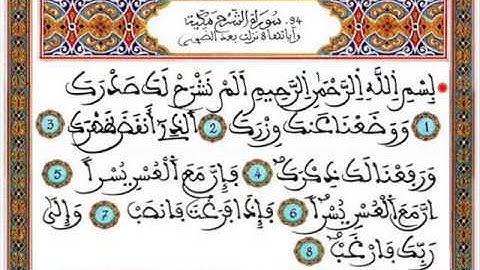 94. سورة الشرح مكية
وآياتها 8 نزلت بعد الضحى
بِسْمِ اللَّهِ الرَّحْمَٰنِ الرَّحِيمِ أَلَمْ نَشْرَحْ لَكَ صَدْرَكَ
1 وَوَضَعْنَا عَنكَ وِزْرَكَ 2 الَّذِي أَنقَضَ ظَهْرَكَ 3
وَرَفَعْنَا لَكَ ذِكْرَكَ 4 فَإِنَّ مَعَ الْعُسْرِ يُسْراً 5
إِنَّ مَعَ الْعُسْرِ يُسْراً 6 فَإِذَا فَرَغْتَ فَانصَبْ 7 وَإِلَىٰ
رَبِّكَ فَارْغَب 8